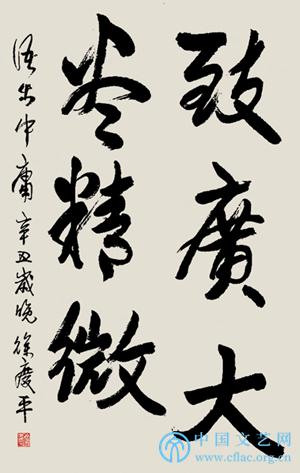 致廣大
尽精微
语出中庸 辛丑歲晚 徐慶平
中国文艺网
www.cflac.org.cn